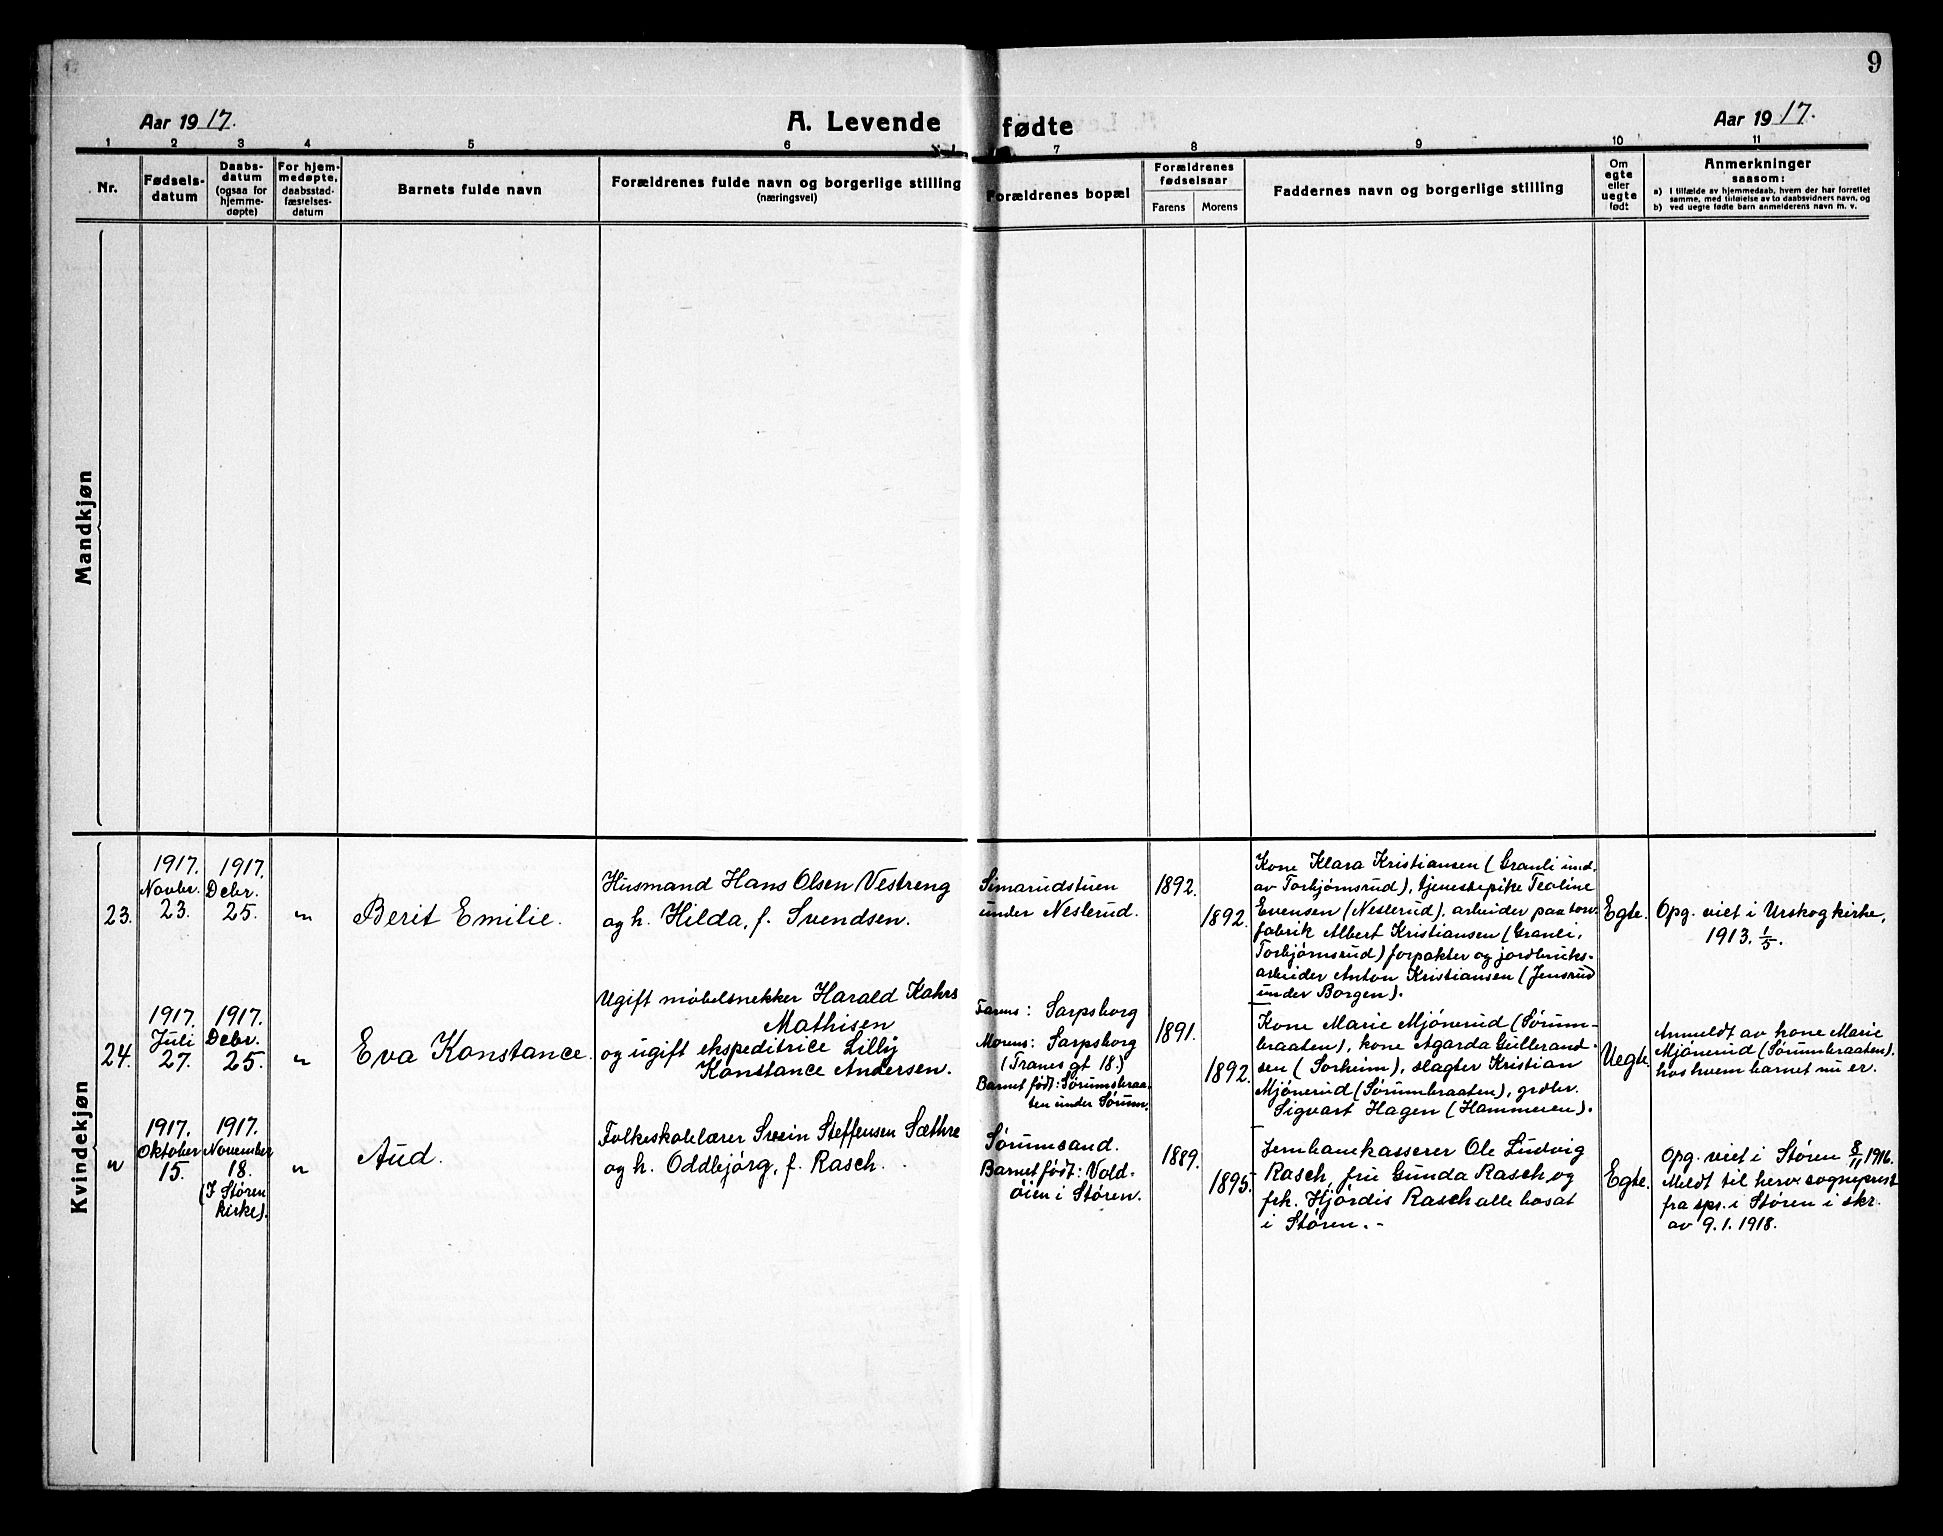 9
Aar 1917.
A. Levende fødte
Aar 1917.
1 2 3 4 5 6 7 8 9 10 11
Nr.
Fødsels-
datum
Daabs-
datum
(ogsaa for
hjemme-
døpte)
For hjem-
medøpte,
daabsstad-
fæstelses-
datum
Barnets fulde navn
Forældrenes fulde navn og borgerlige stilling
(næringsvei)
Forældrenes bopæl
Forældrenes
fødselsaar
Farens
Morens
Faddernes navn og borgerlige stilling
Om
egte
eller
uegte
født
Anmerkninger
saasom:
a) I tilfælde av hjemmedaab, hvem der har forrettet
samme, med tilføielse av to daabsvidners navn, og
b) ved uegte fødte barn anmelderens navn m. v.
Mandkjøn
Kvindekjøn
23.
1917.
Novbr.
23.
1917.
Debr.
25.
"
Berit Emilie.
Husmand Hans Olsen Vestreng
og h. Hilda, f. Svendsen.
Simarudstuen
under Neslerud.
1892.
1892.
Kone Klara Kristiansen (Granli und.
av Torbjørnsrud), tjenestepike Teoline
Evensen (Neslerud), arbeider paa torv-
fabrik Albert Kristiansen (Granli,
Torbjørnsrud) forpakter og jordbruks-
arbeider Anton Kristiansen (Jensrud
under Borgen).
Egte.
Opg. viet i Urskog kirke,
1913. 1/5.
24.
1917.
Juli
27.
1917.
Debr.
25.
"
Eva Konstance.
Ugift møbelsnekker Harald Kahrs
Mathisen
og ugift ekspeditrice Lilly
Konstance Andersen.
Farens: Sarpsborg
Morens: Sarpsborg
(Tranes gt 18.)
Barnet født: Sørumsbraa-
ten under Sørum.
1891.
1892.
Kone Marie Mjønerud (Sørum-
braaten), kone Agarda Gulbrand-
sen (Sorheim), slagter Kristian
Mjønerud (Sørumbraaten), grdbr.
Sigvart Hagen (Hammeren).
Uegte
Anmeldt av kone Marie
Mjønerud (Sørumbraaten).
hos hvem barnet nu er.
"
1917.
Oktober
15.
1917.
November
18.
(I Støren
kirke).
"
Aud.
Folkeskolelærer Svein Steffensen Sæthre
og h. Oddbjørg, f. Rasch.
Sørumsand.
Barnet født: Vold-
øien i Støren.
1889.
1895.
Jernbanekasserer Ole Ludvig
Rasch, fru Gunda Rasch og
frk. Hjørdis Rasch alle bosat
i Støren. -
Egte.
Opg. viet i Støren 8/11 1916.
Meldt til herv. sogneprest
fra spr. i Støren i skr.
av 9.1.1918.